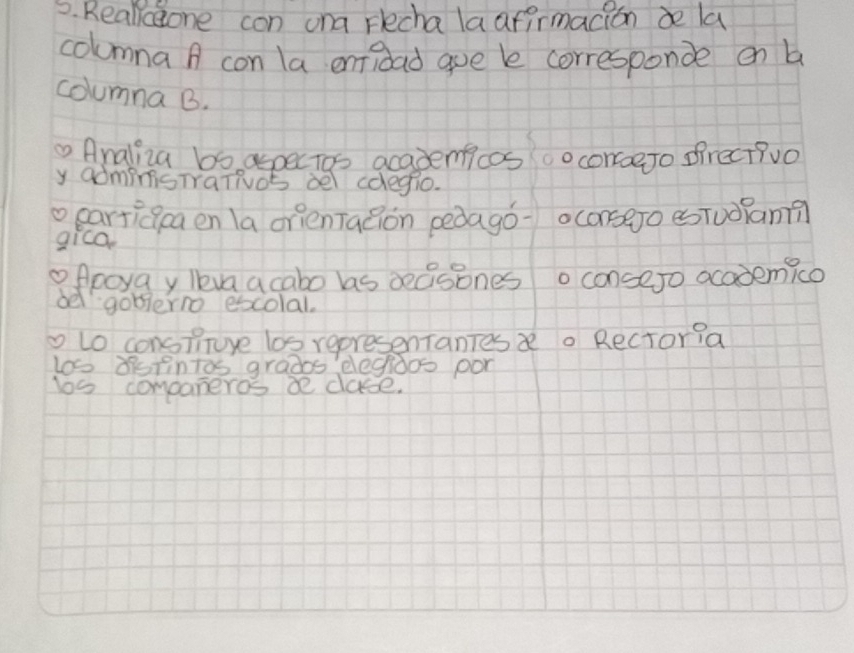 5. Realicione con una flecha la afirmación de la
columna A con la entidad que le corresponde en la
columna B.
Analiza los aspectos academicos o concejo directivo
y administrativos del colegio.
participa en la orientación pedagó- o consejo estudiantil
gica.
Apoya y lleva acabo las decisiones o consejo academico
del gobierno escolal.
Lo constituye los representantes de o Rectoría
los distintos grados elegidos por
los compañeros de clase.